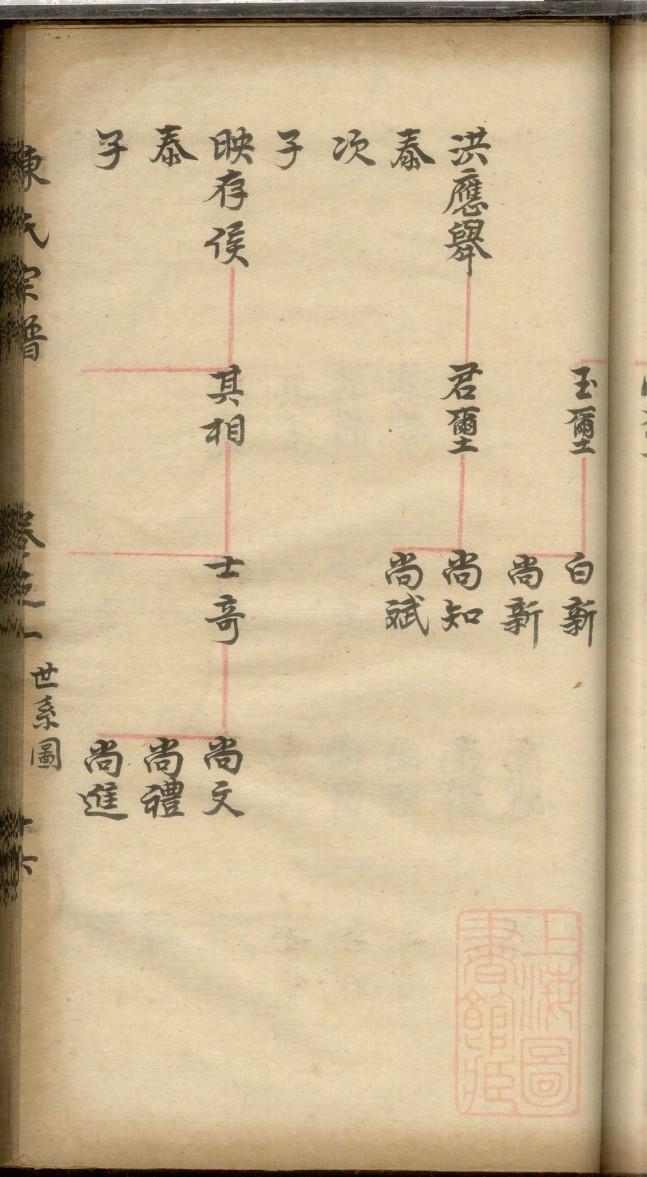 玉璽
白新
尚新
洪應舉
泰
次
子
君璽
尚知
尚斌
映存侯
泰
子
其相
士奇
尚文
尚禮
尚進
陳氏宗譜
卷之一
世系圖
十六
上海圖
書館藏